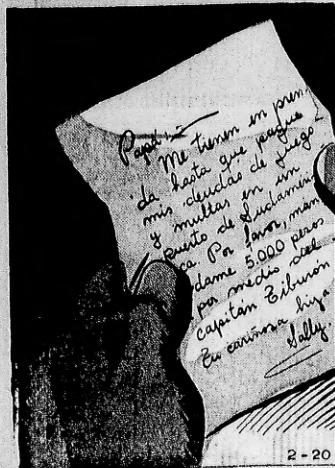 Papá:
Me tienen en pren-
da hasta que pague
mis deudas de juego
y multas en un
puerto de Sudaméri-
ca Por favor, mán
dame 5.000 pesos
por medio del
capitán Tiburón
Tu cariñosa hija
Sally
2-20